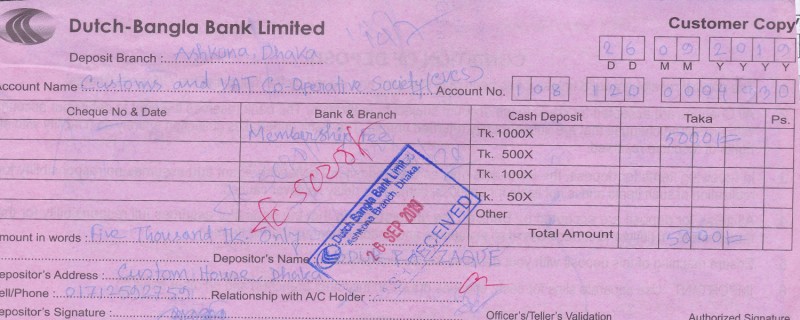 Dutch-Bangla Bank Limited
Customer Copy
Deposit Branch : Ashkona, Dhaka
26 09 2019
D D M M Y Y Y Y
Account Name : Customs and VAT Co-Operative Society (CVCS) Account No. 108 120
Cheque No & Date Bank & Branch Cash Deposit Taka Ps.
Membership fee Tk. 1000X 5000/=
Tk. 500X
Tk. 100X
Tk. 50X
Other
Total Amount 5000/=
Amount in words : Five Thousand Tk. Only
Dutch Bangla Bank Limit
Ashkona Branch, Dhaka.
26 SEP 2019
RECEIVED
Depositor's Name : RAZZAQUE
epositor's Address : Custom House, Dhaka
ell/Phone : Relationship with A/C Holder :
epositor's Signature :
Officer's/Teller's Validation Authorized Signature